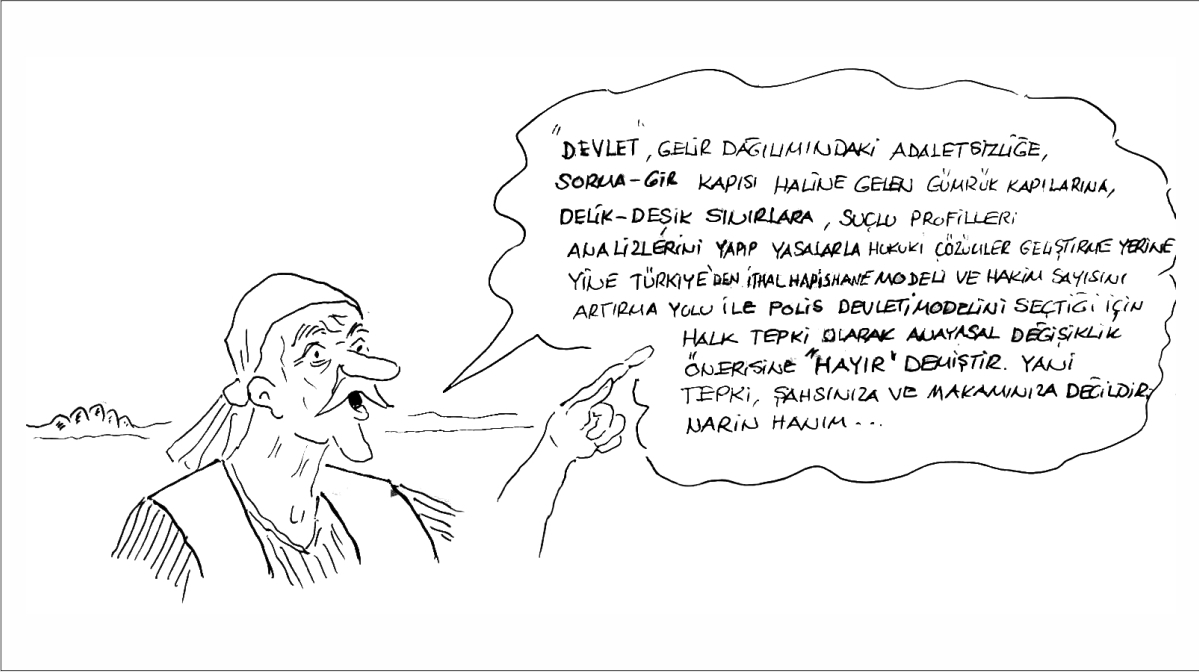 "DEVLET", GELİR DAĞILIMINDAKİ ADALETSİZLİĞE,
SORMA-GİR KAPISI HALİNE GELEN GÜMRÜK KAPILARINA,
DELİK-DEŞİK SINIRLARA, SUÇLU PROFİLLERİ
ANALİZLERİNİ YAPIP YASALARLA HUKUKİ ÇÖZÜMLER GELİŞTİRME YERİNE
YİNE TÜRKİYE'DEN İTHAL HAPİSHANE MODELİ VE HAKİM SAYISINI
ARTIRMA YOLU İLE POLİS DEVLETİ MODELİNİ SEÇTİĞİ İÇİN
HALK TEPKİ OLARAK ANAYASAL DEĞİŞİKLİK
ÖNERİSİNE "HAYIR" DEMİŞTİR. YANİ
TEPKİ, ŞAHSINIZA VE MAKAMINIZA DEĞİLDİR.
NARİN HANIM...